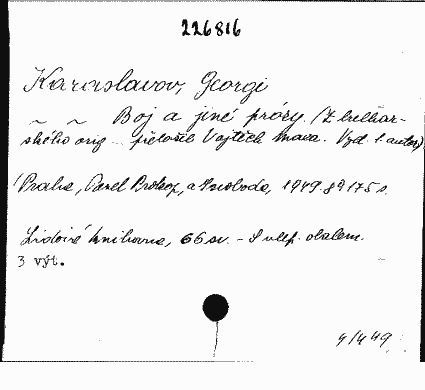 226816
Karaslavov, Georgi
~ ~ Boj a jiné prózy. /Z bulhar-
ského orig ... přeložil Vojtěch Vyd. 1. autor/
/Praha, Pavel Prokop, a Svoboda, 1949. 8° 175 s.
Lidová knihovna, 66 sv. - S obalem.
3 výt.
4/4 49